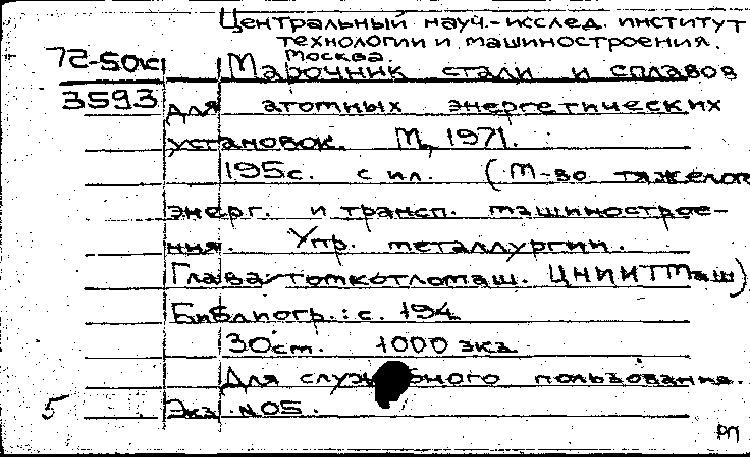 Центральный науч.-исслед. институт
технологии и машиностроения.
Москва.
72-50к
Марочник стали и сплавов
3593
для атомных энергетических
установок. М., 1971.
195с. с ил. (М-во тяжелого
энерг. и трансп. машинострое-
ния. Упр. металлургии.
Главатомкотломаш. ЦНИИТМаш)
Библиогр.: с. 194
30см. 1000 экз.
Для служебного пользования.
5 Экз. №05.
РП